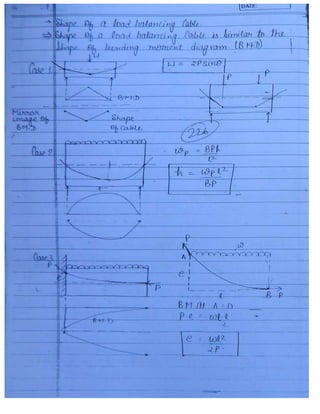 DATE
→ Shape of a load balancing Cable.
→ Shape of a load balancing Cable is similar to the
shape of bending moment diagram (B.M.D)
Case 1
W
W = 2P sinθ
P
P
B.M.D
Mirror
image of
BMD
Shape
of cable
226
Case 2
wp = 8Ph
l²
h = wp l²
8P
Case 3
P
P
w
P
A
e
l
B P
B.M.D
B M At A = 0
P e = wl²
2
e = wl²
2P